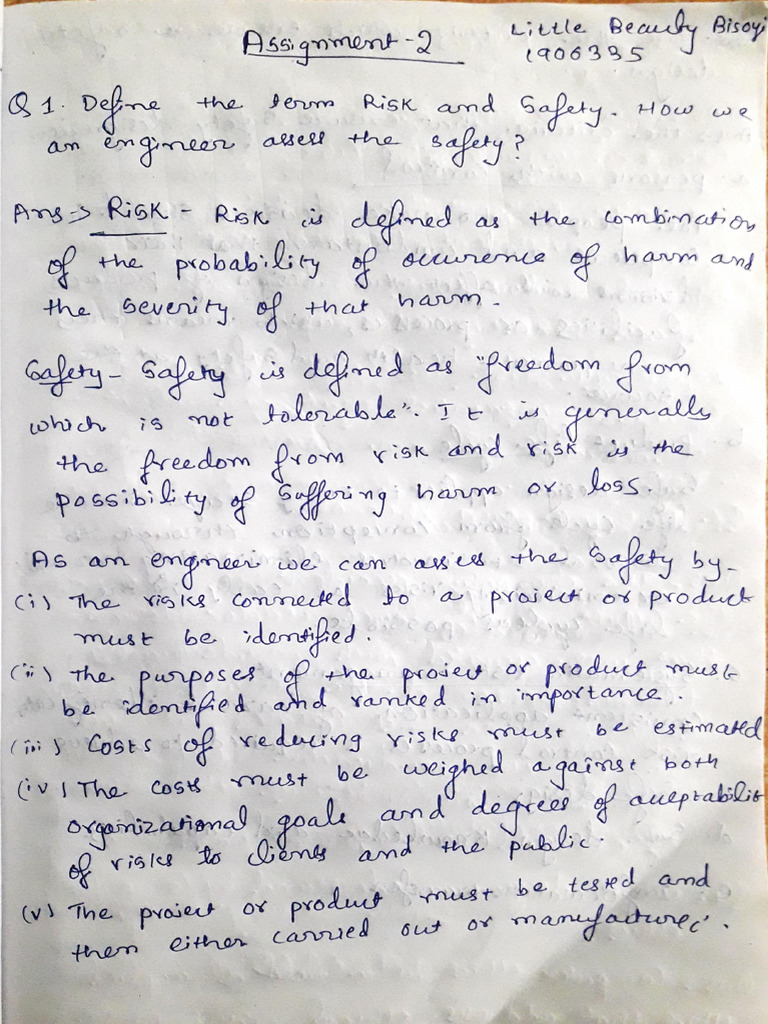 Assignment-2
Little Beauty Bisoyi
1906335
Q 1. Define the term Risk and Safety. How we
an engineer assess the safety?
Ans⇒ Risk - Risk is defined as the combination
of the probability of occurence of harm and
the severity of that harm.
Safety - Safety is defined as "freedom from
which is not tolerable". It is generally
the freedom from risk and risk is the
possibility of suffering harm or loss.
As an engineer we can assess the safety by-
(i) The risks connected to a project or product
must be identified.
(ii) The purposes of the project or product must
be identified and ranked in importance.
(iii) Costs of reducing risks must be estimated
(iv) The costs must be weighed against both
organizational goals and degrees of acceptability
of risks to clients and the public.
(v) The project or product must be tested and
then either carried out or manufactured.